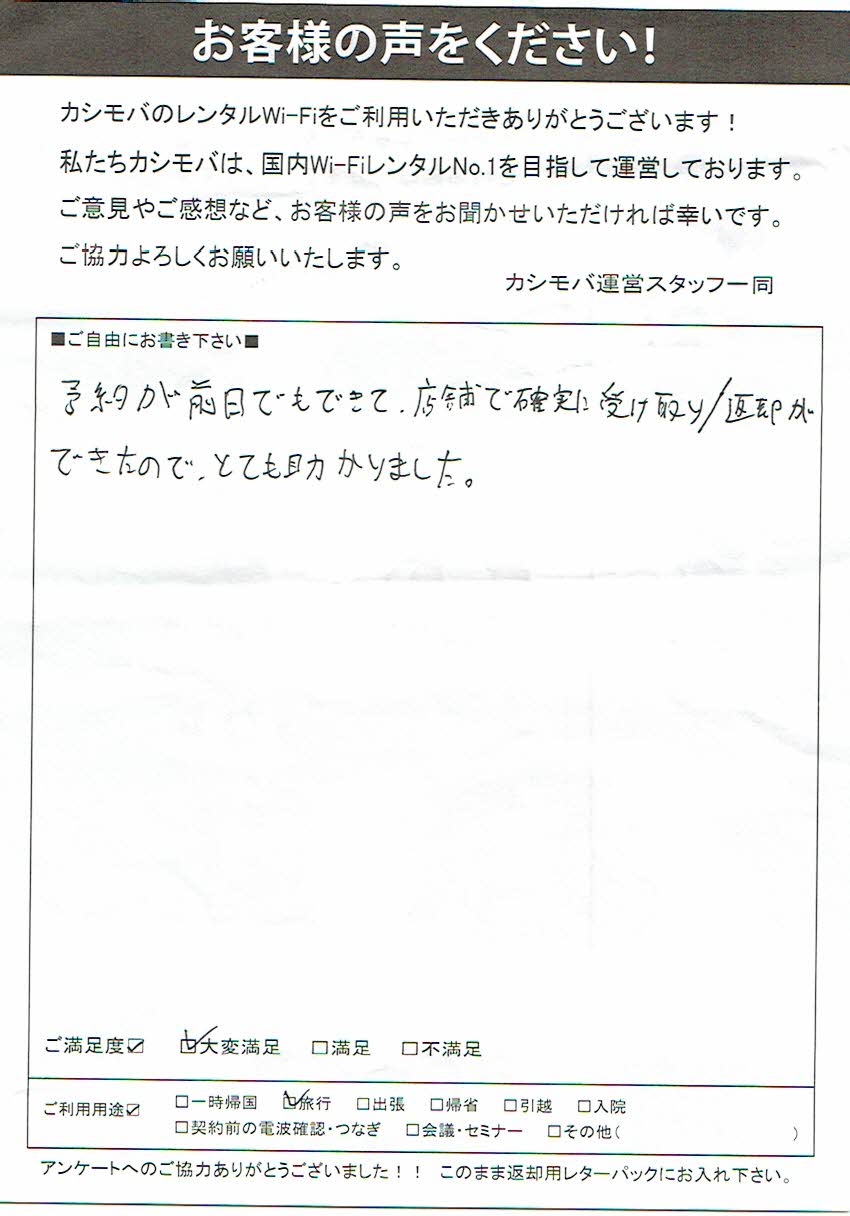 お客様の声をください!
カシモバのレンタルWi-Fiをご利用いただきありがとうございます!
私たちカシモバは、国内Wi-FiレンタルNo.1を目指して運営しております。
ご意見やご感想など、お客様の声をお聞かせいただければ幸いです。
ご協力よろしくお願いいたします。
カシモバ運営スタッフ一同
■ご自由にお書き下さい■
予約が前日でもできて、店舗で確実に受け取り/返却が
できたので、とても助かりました。
ご満足度☑ ☑大変満足 □満足 □不満足
ご利用用途☑ □一時帰国 ☑旅行 □出張 □帰省 □引越 □入院
□契約前の電波確認・つなぎ □会議・セミナー □その他( )
アンケートへのご協力ありがとうございました!! このまま返却用レターパックにお入れ下さい。